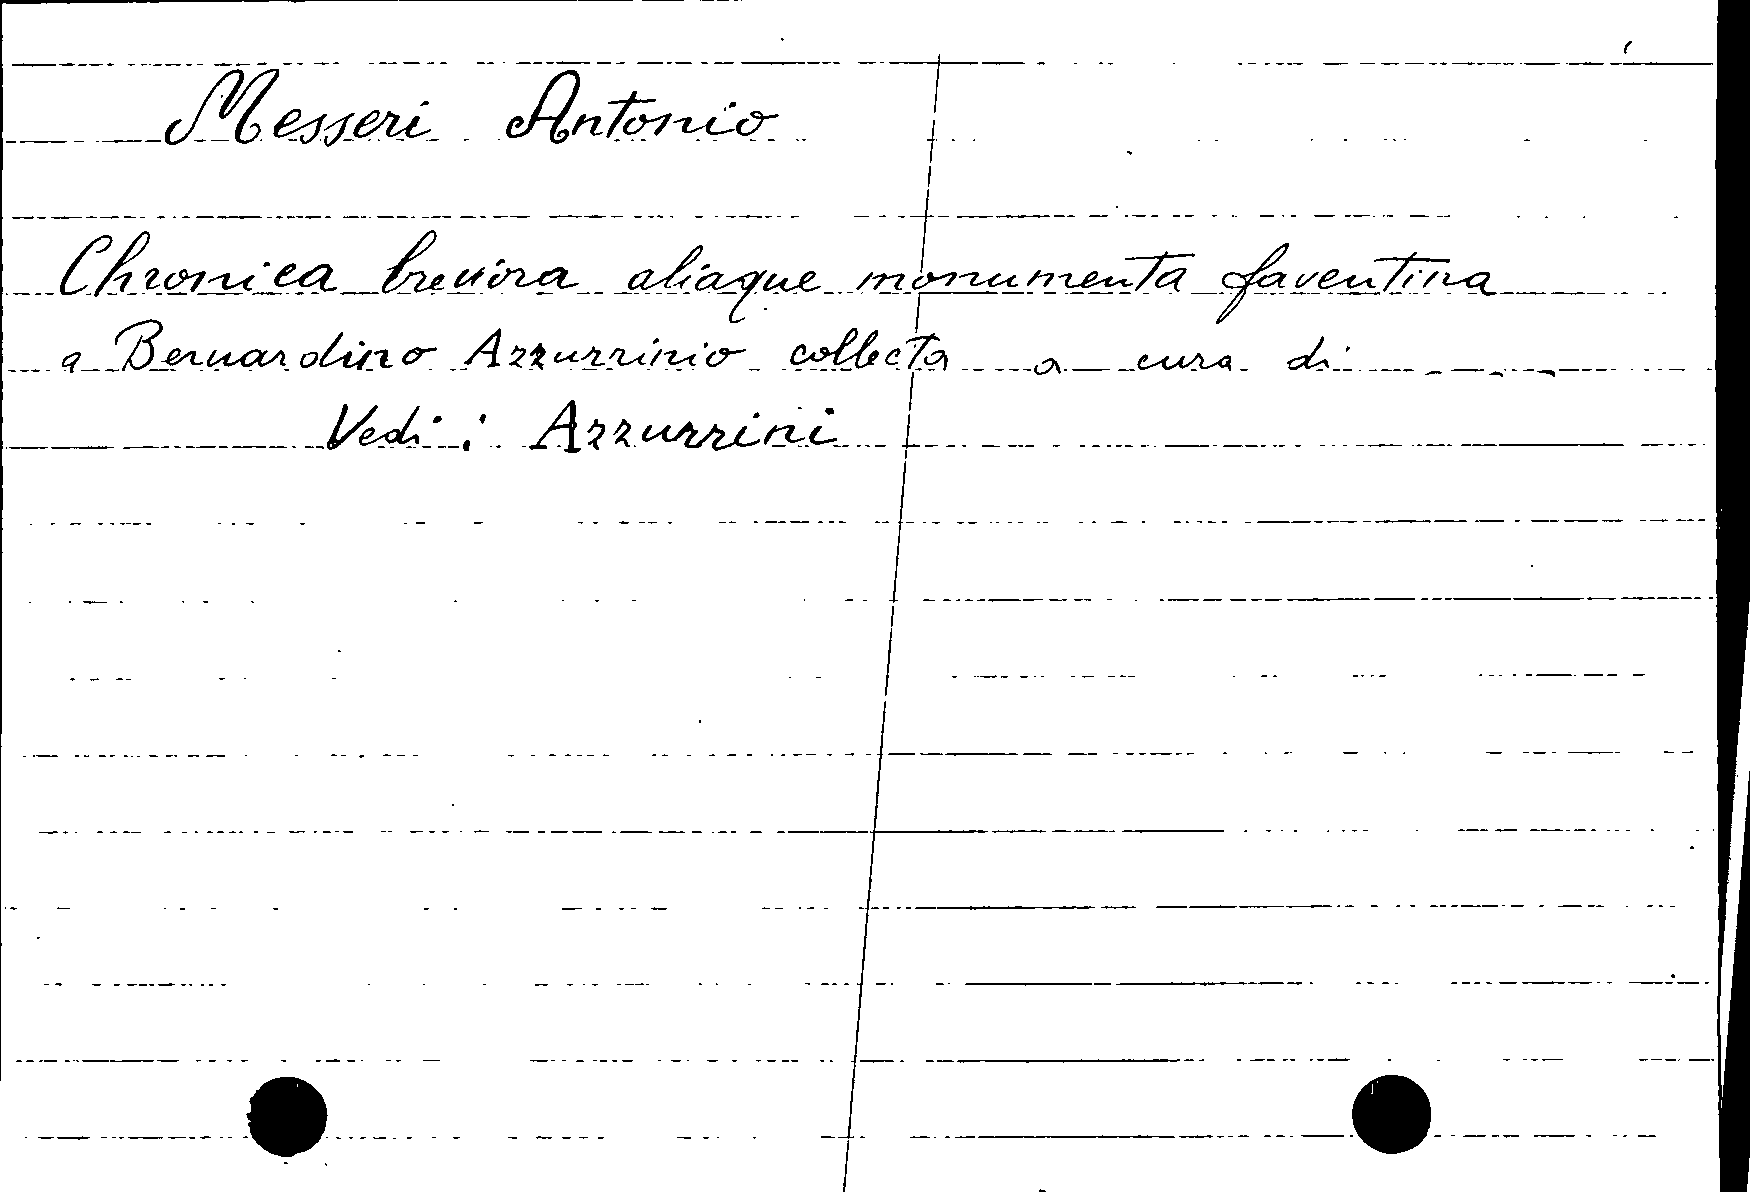 Messeri Antonio
Chronica breviora aliaque monumenta faventina
a Bernardino Azzurrinio collecta a cura di ----
Vedi: Azzurrini